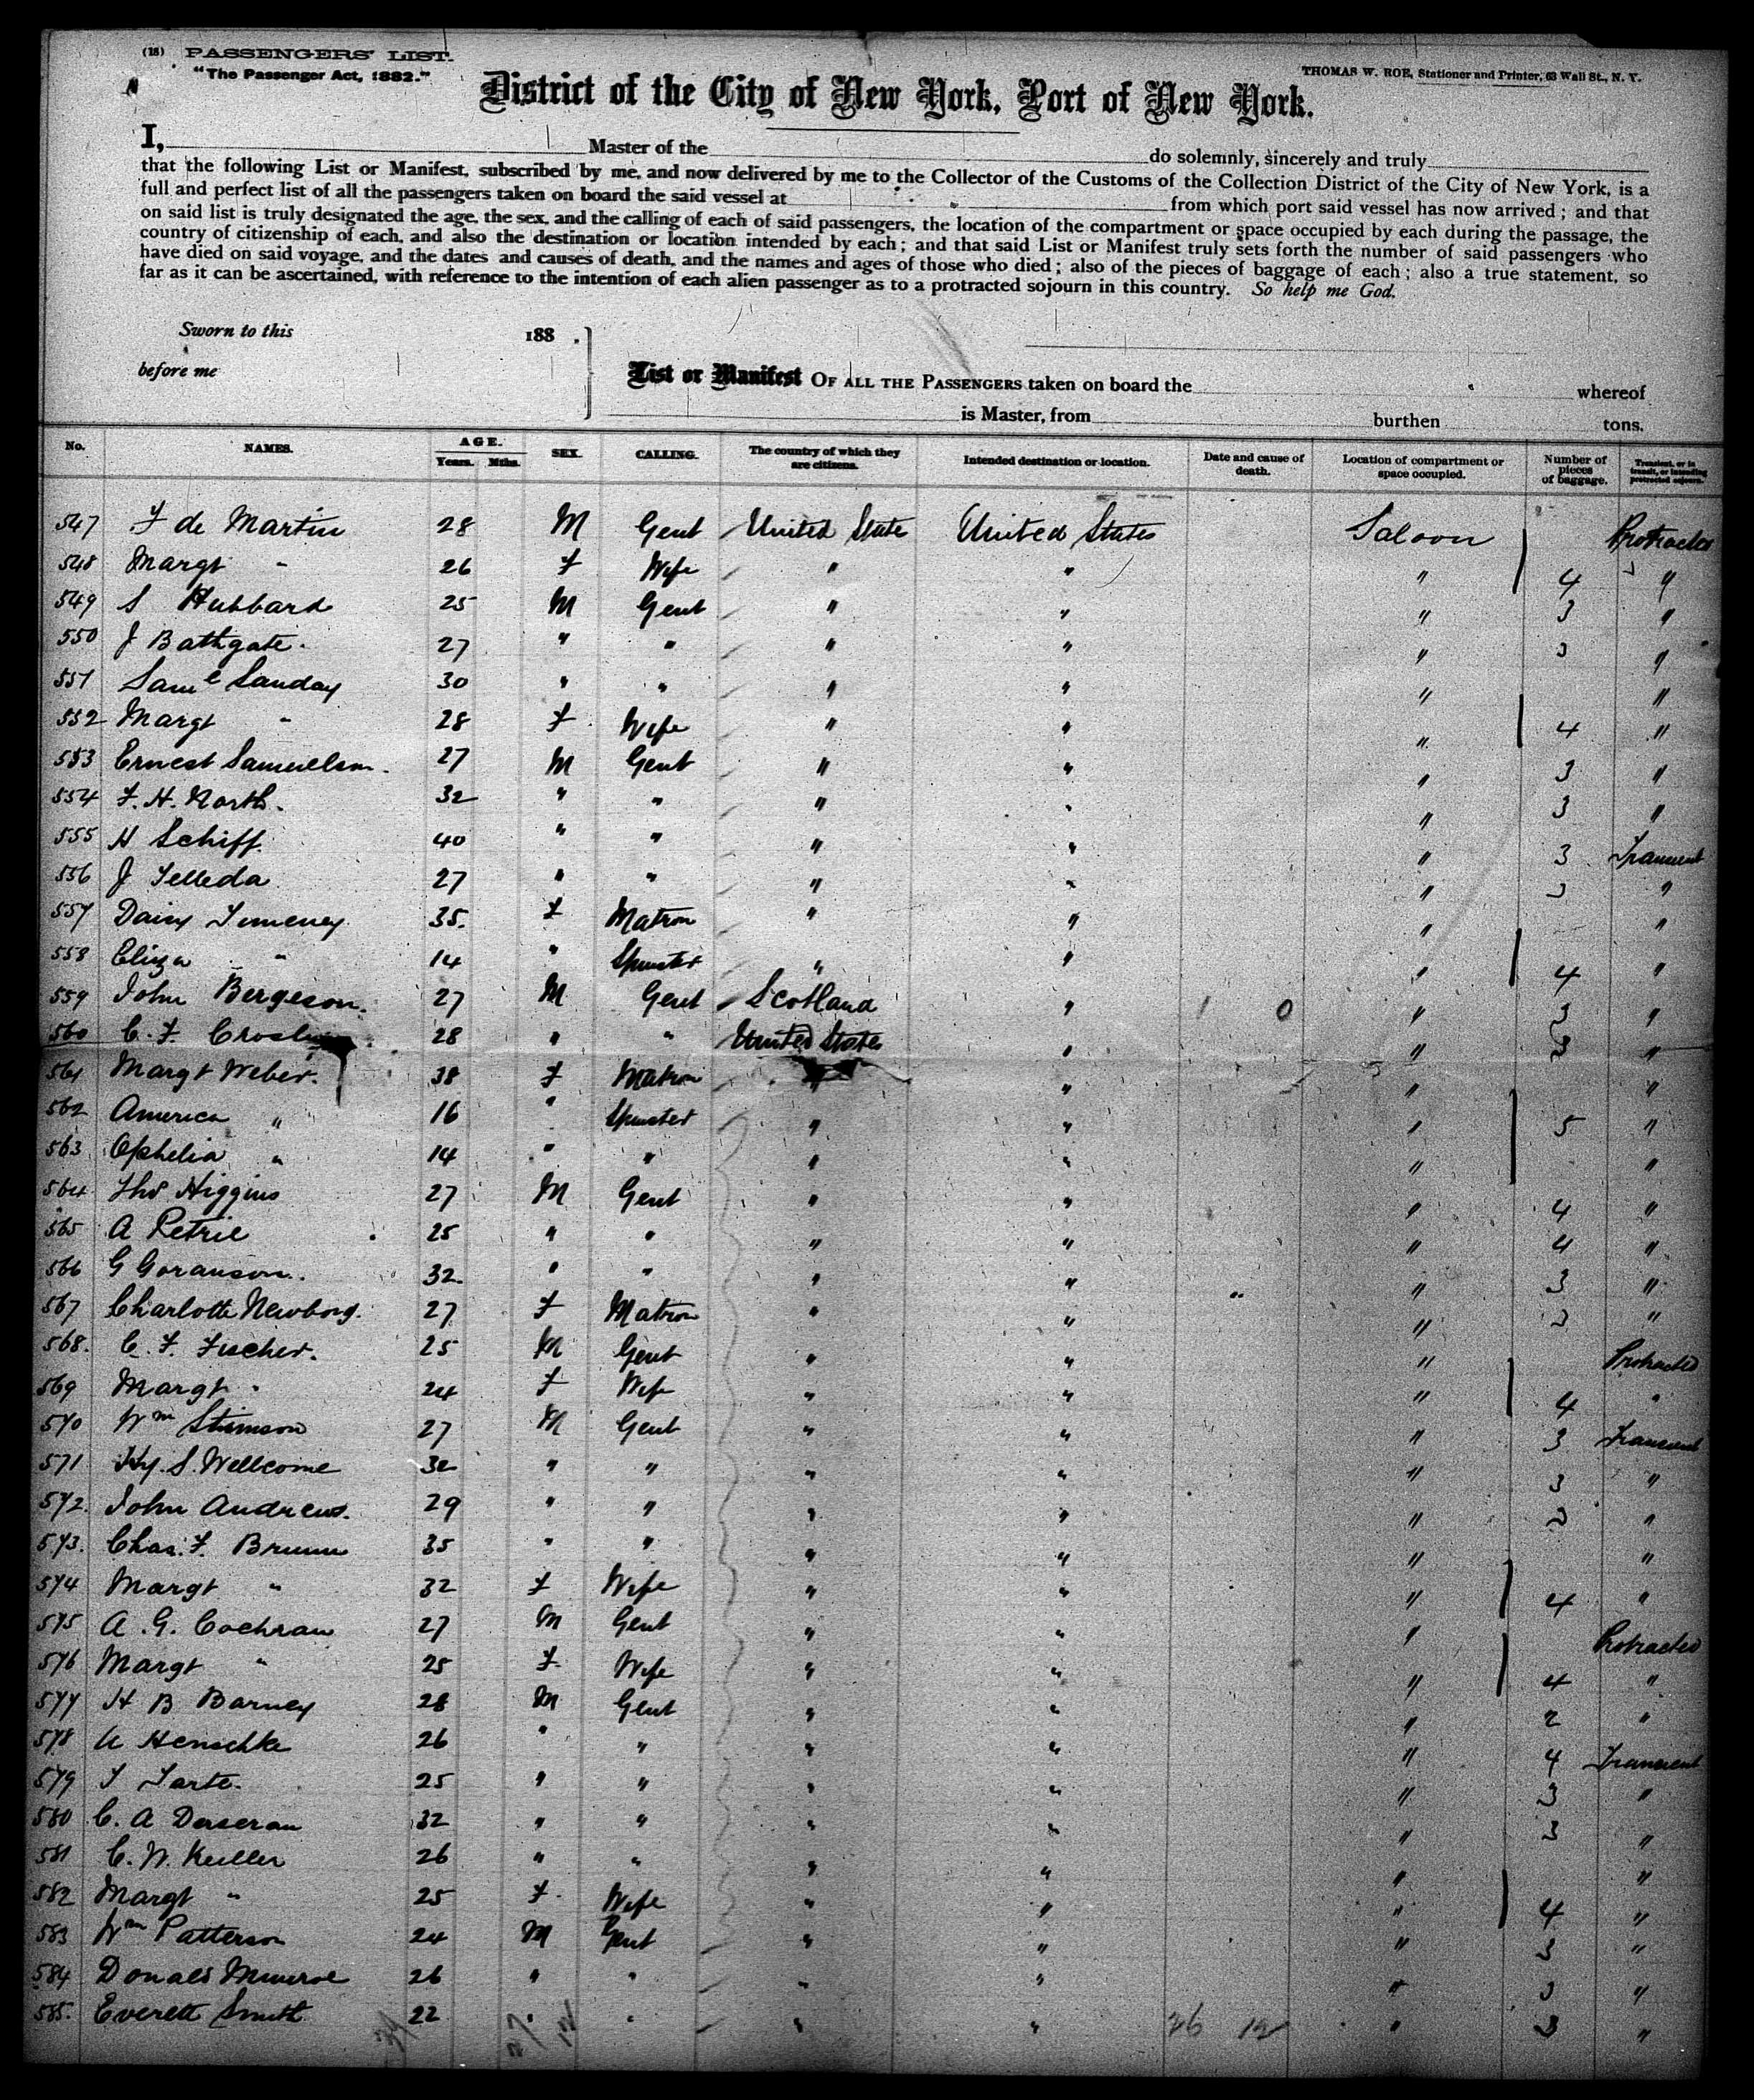 (18) PASSENGERS' LIST.
"The Passenger Act, 1882."
THOMAS W. ROE, Stationer and Printer, 63 Wall St., N. Y.
District of the City of New York, Port of New York.
I, Master of the do solemnly, sincerely and truly
that the following List or Manifest, subscribed by me, and now delivered by me to the Collector of the Customs of the Collection District of the City of New York, is a
full and perfect list of all the passengers taken on board the said vessel at from which port said vessel has now arrived; and that
on said list is truly designated the age, the sex, and the calling of each of said passengers, the location of the compartment or space occupied by each during the passage, the
country of citizenship of each, and also the destination or location intended by each; and that said List or Manifest truly sets forth the number of said passengers who
have died on said voyage, and the dates and causes of death, and the names and ages of those who died; also of the pieces of baggage of each; also a true statement, so
far as it can be ascertained, with reference to the intention of each alien passenger as to a protracted sojourn in this country. So help me God.
Sworn to this 188 .
before me
List or Manifest OF ALL THE PASSENGERS taken on board the whereof
is Master, from burthen tons.
No. NAMES. AGE. Years. Mths. SEX. CALLING. The country of which they are citizens. Intended destination or location. Date and cause of death. Location of compartment or space occupied. Number of pieces of baggage. Transient, or in transit, or intending protracted sojourn.
547 F de Martin 28 M Gent United State United States Saloon Protracted
548 Margt " 26 F Wife " " " 4 "
549 S Hubbard 25 M Gent " " " 3 "
550 J Bathgate. 27 " " " " " 3 "
551 Saml Sanday 30 " " " " " "
552 Margt " 28 F Wife " " " 4 "
553 Ernest Samuelson. 27 M Gent " " " 3 "
554 F. H. North. 32 " " " " " 3 "
555 H Schiff. 40 " " " " " 3 Transient
556 J Telleda 27 " " " " " 3 "
557 Daisy 35. F Matron " " " "
558 Eliza " 14 " Spinster " " " 4 "
559 John Bergeson. 27 M Gent Scotland " 0 " 3 "
560 C. F. 28 " " United States " " 3 "
561 Margt Weber. 38 F Matron " " " "
562 America " 16 " Spinster " " " 5 "
563 Ophelia " 14 " " " " " "
564 Thos Higgins 27 M Gent " " " 4 "
565 A Petrie 25 " " " " " 4 "
566 G Goranson. 32. " " " " " 3 "
567 Charlotte Newborg. 27 F Matron " " " 3 "
568. C. F. Fischer. 25 M Gent " " " Protracted
569 Margt " 24 F Wife " " " 4 "
570 Wm Stimson 27 M Gent " " " 3 Transient
571 Hy. S. Wellcome 32 " " " " " 3 "
572. John Andrews. 29 " " " " " 3 "
573. Chas. F. Brunn 35 " " " " " "
574 Margt " 32 F Wife " " " 4 "
575 A. G. Cochran 27 M Gent " " " Protracted
576 Margt " 25 F. Wife " " " 4 "
577 H B Barney 28 M Gent " " " 2 "
578 Henschke 26 " " " " " 4 Transient
579 Tarte. 25 " " " " " 3 "
580 C. A Derseran 32 " " " " " 3 "
581 C. W. Keiller 26 " " " " " "
582 Margt " 25 F. Wife " " " 4 "
583 Wm Patterson 24 M Gent " " " 3 "
584 Donald Munroe 26 " " " " " 3 "
585. Everett Smith 22 " " " " " 3 "
26 12